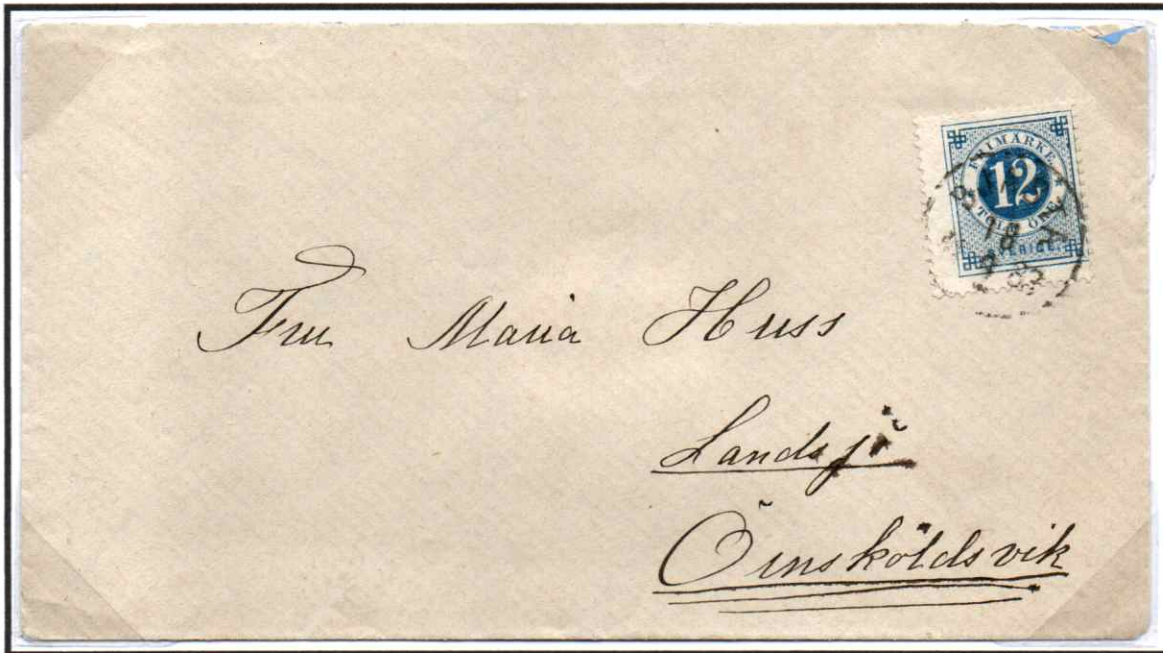 FRIMÄRKE
12
TOLF ÖRE
SVERIGE
18
Fru Maria Huss
Landsjö
Örnsköldsvik